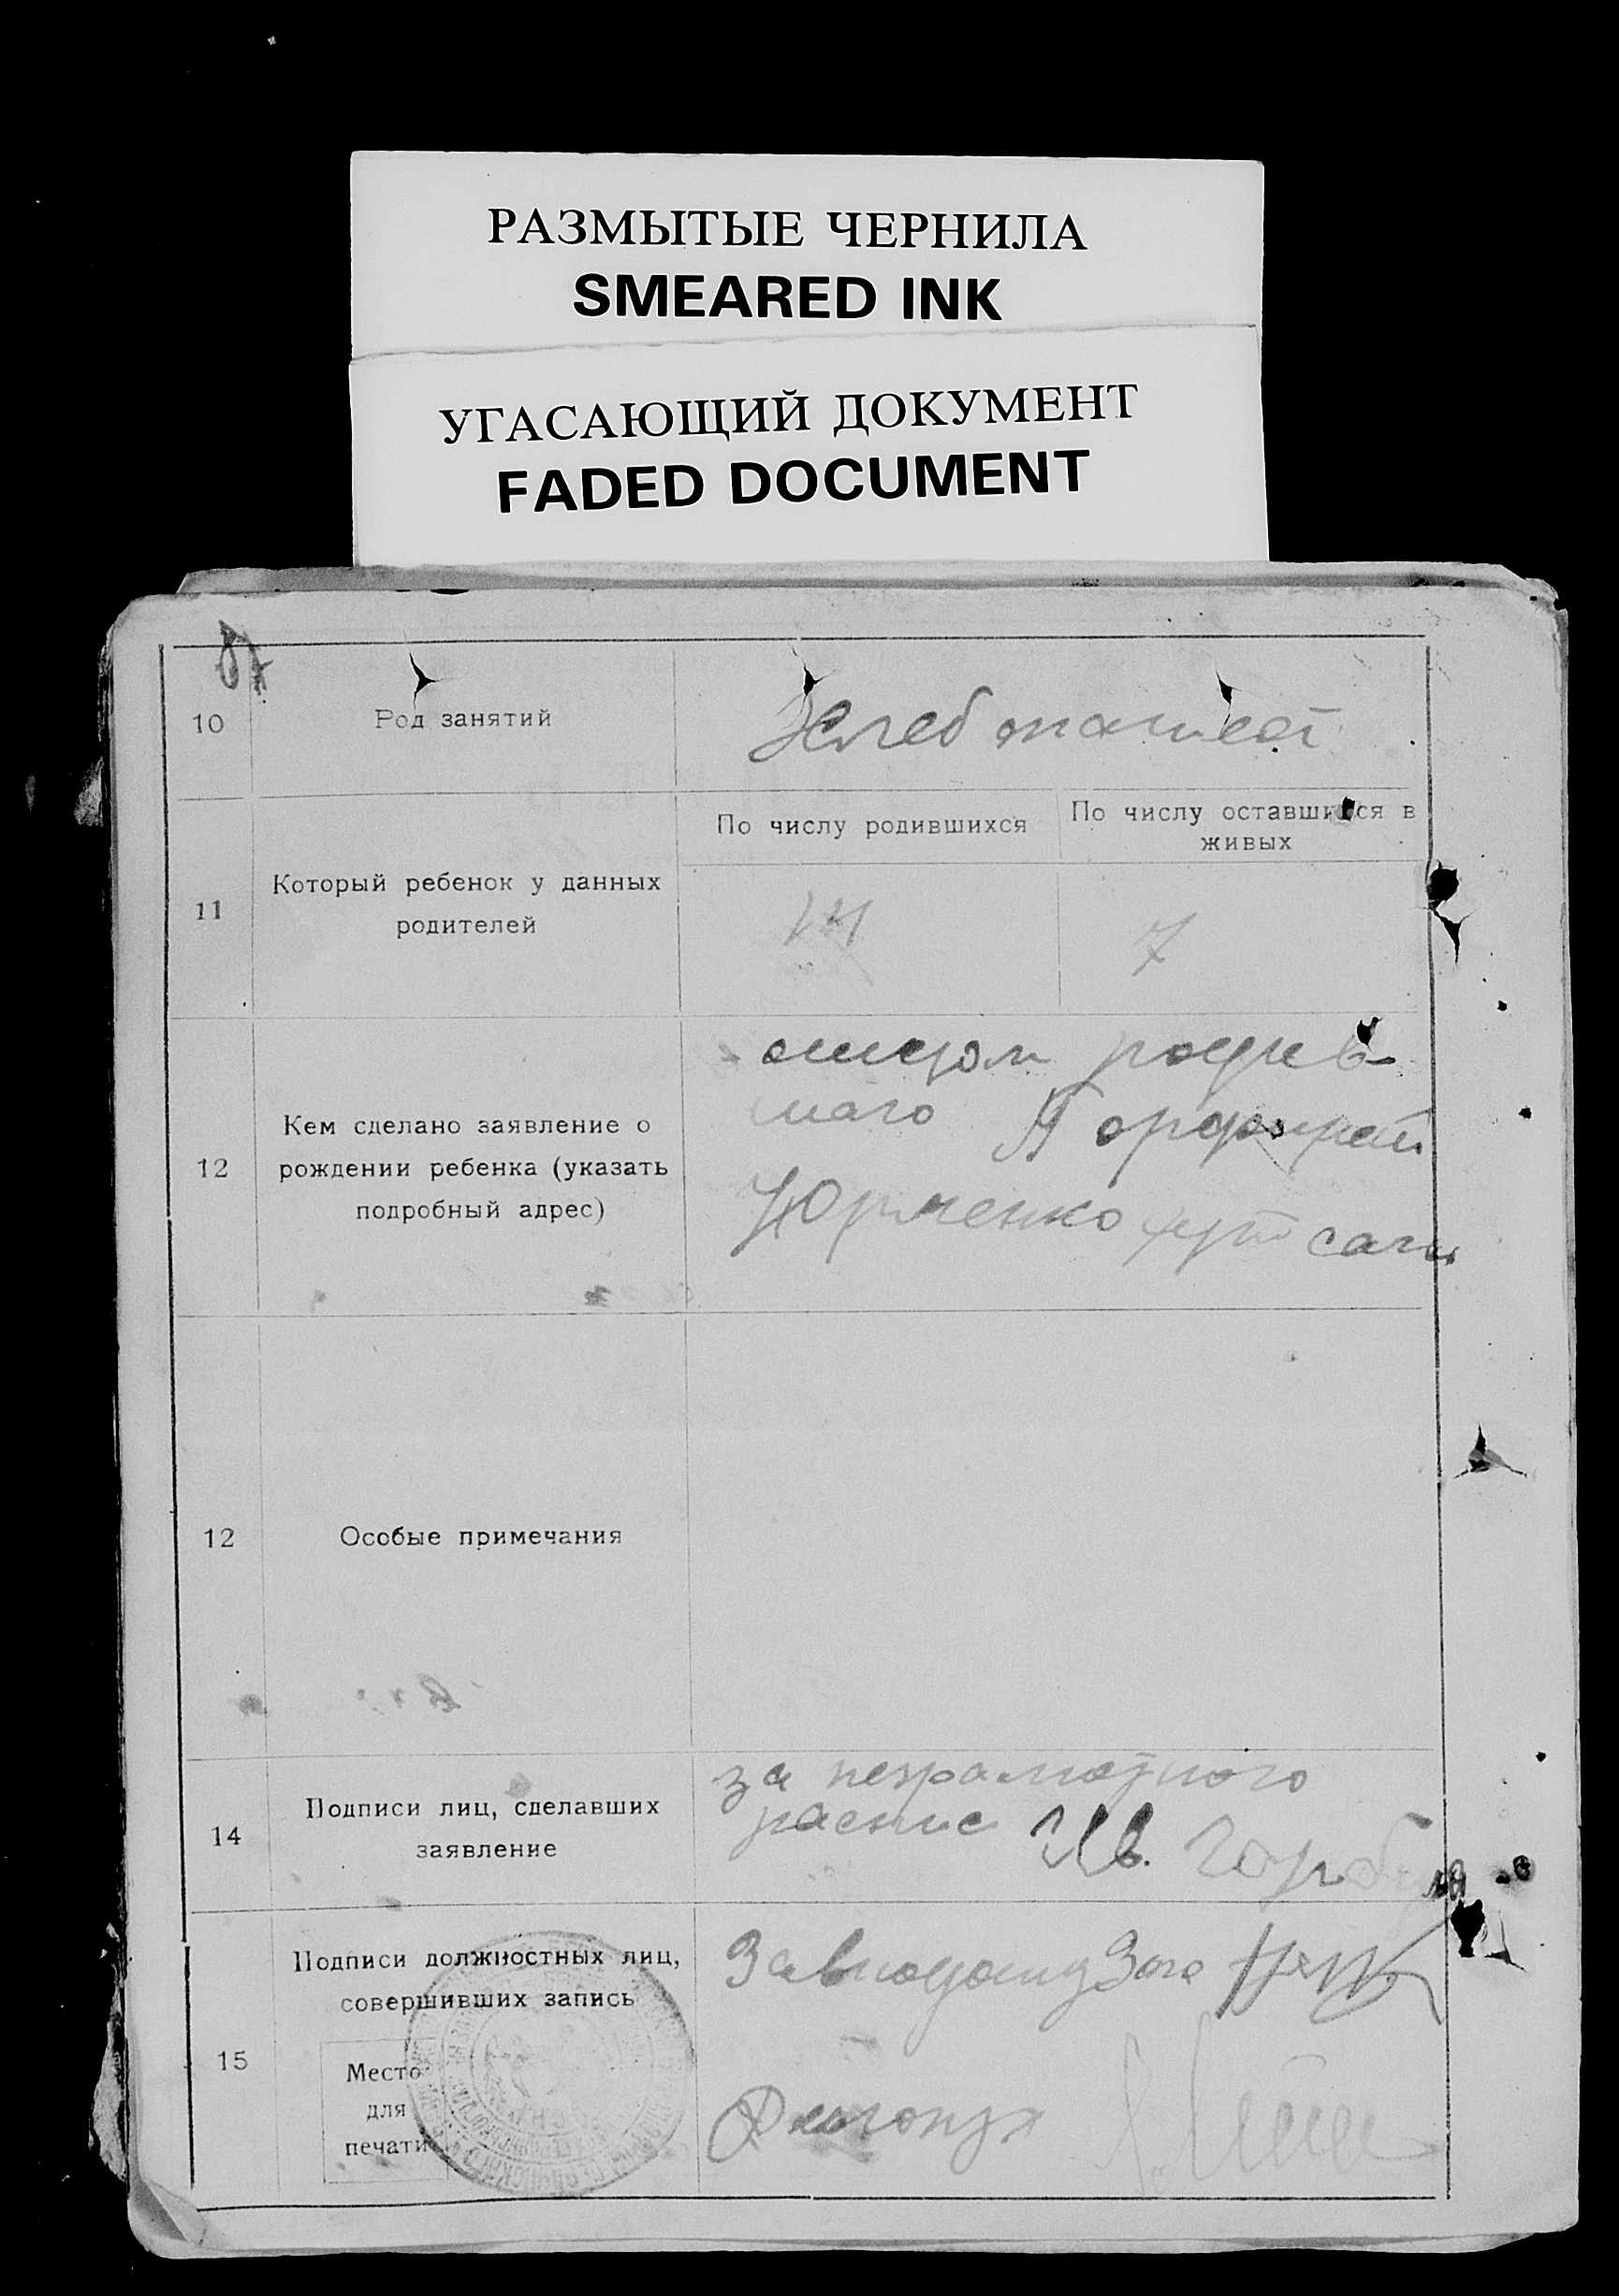 РАЗМЫТЫЕ ЧЕРНИЛА
SMEARED INK
УГАСАЮЩИЙ ДОКУМЕНТ
FADED DOCUMENT
10
Род занятий
Хлебопашест
11
Который ребенок у данных
родителей
По числу родившихся
По числу оставшихся в
живых
14
7
12
Кем сделано заявление о
рождении ребенка (указать
подробный адрес)
отцом родив
шаго
Юрченко
12
Особые примечания
14
Подписи лиц, сделавших
заявление
за неграмотного
распис Ив.
15
Подписи должностных лиц,
совершивших запись
Место
для
печати